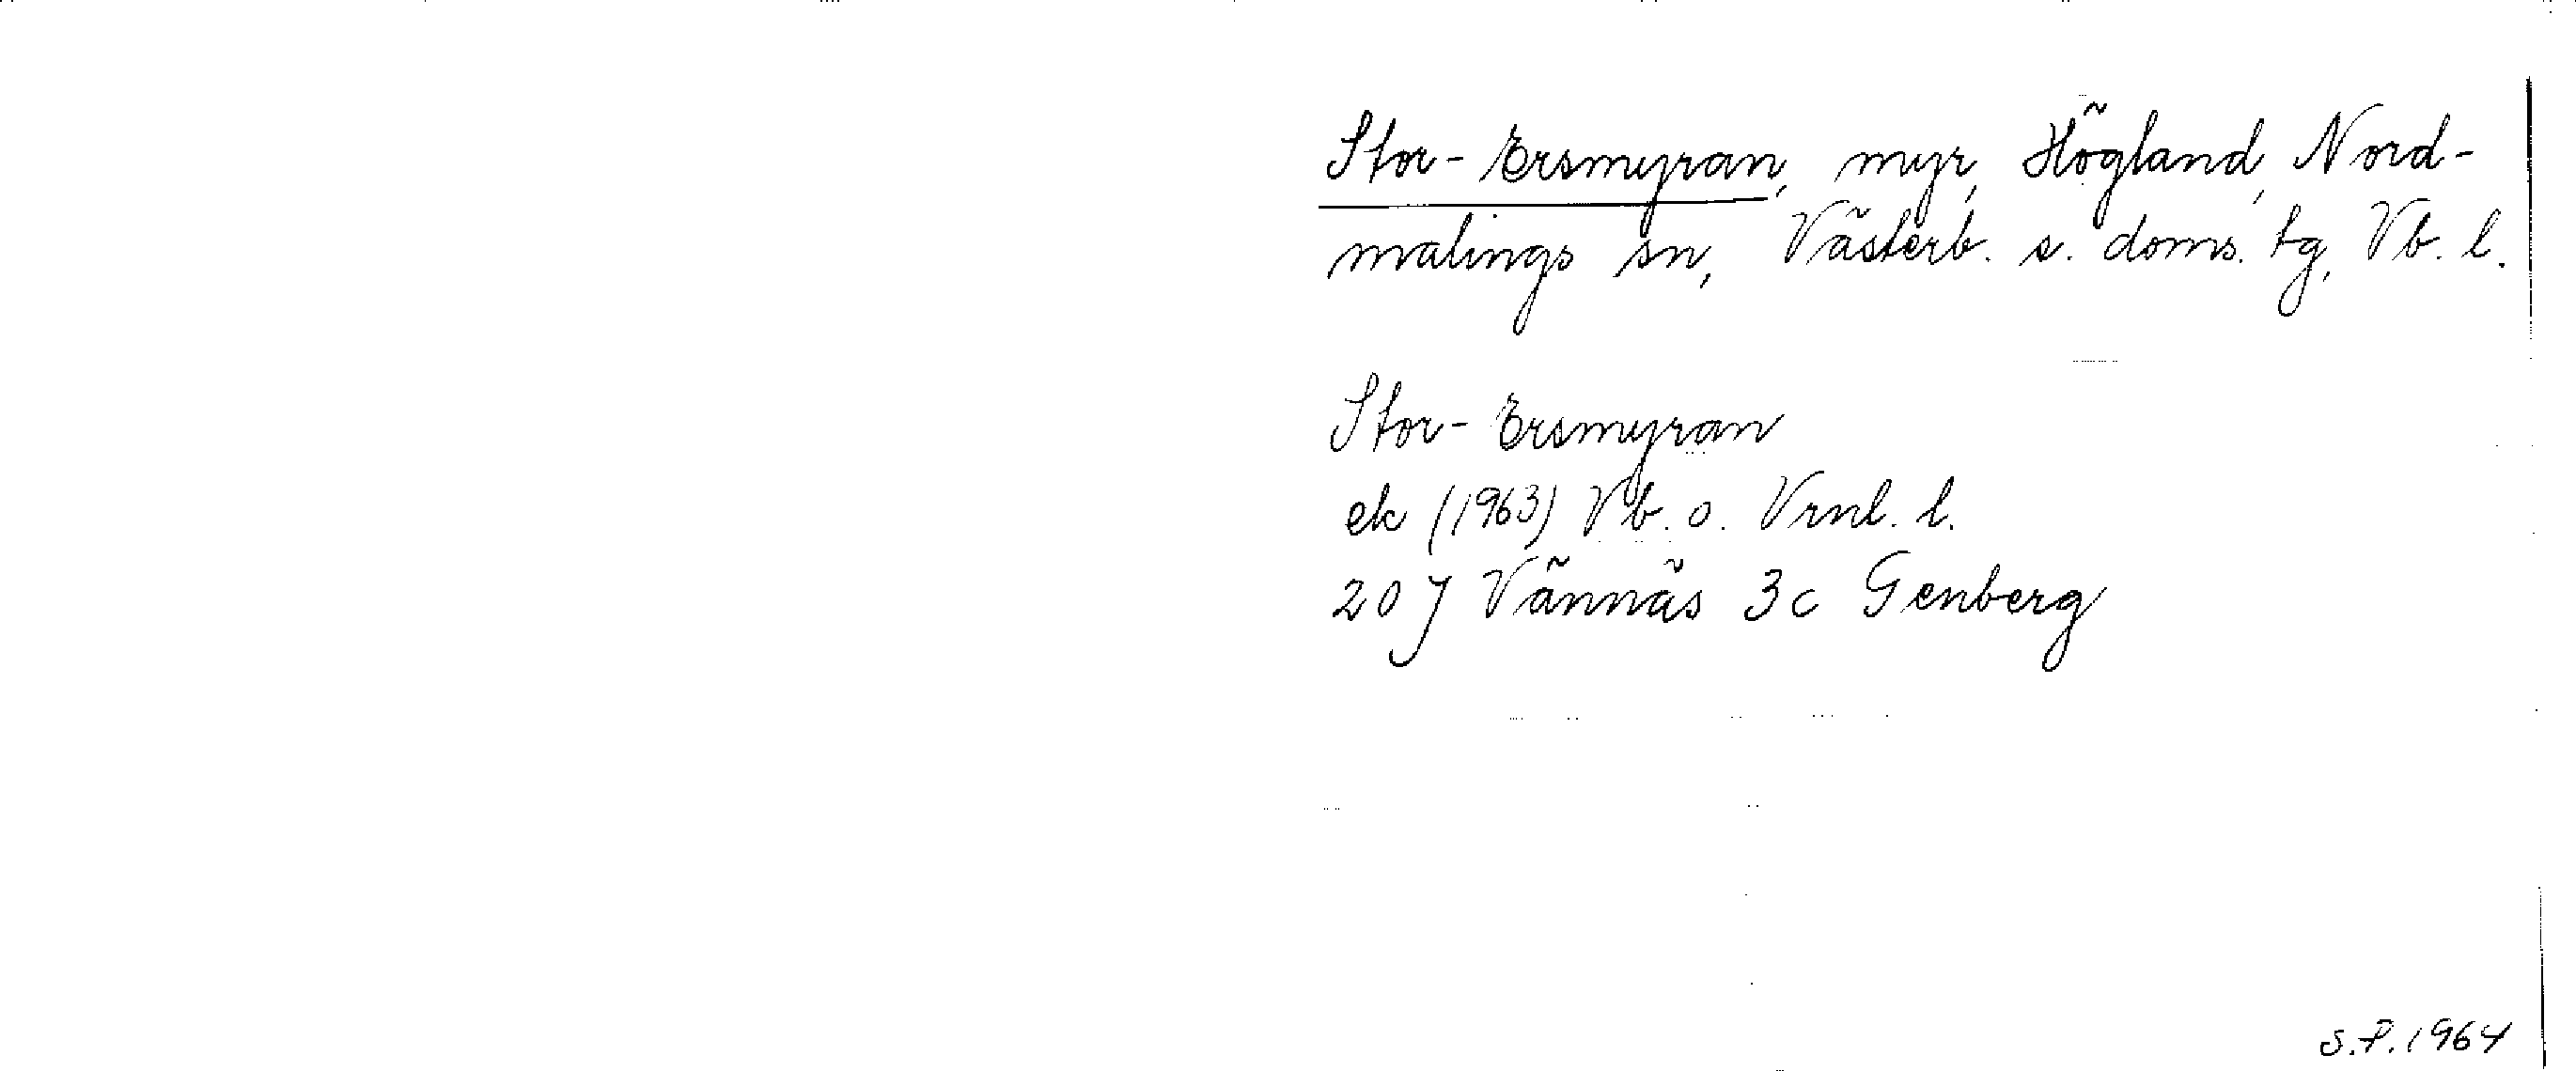 Stor-Ersmyran, myr, Högland, Nord-
malings sn, Västerb. s. doms. tg, Vb. l.
Stor-Ersmyran
ek (1963) Vb. o. Vrnl. l.
20 J Vännäs 3c Genberg
S.P. 1964